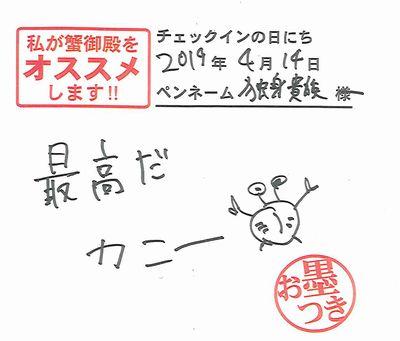 私が蟹御殿を
オススメ
します!!
チェックインの日にち
2019年4月14日
ペンネーム 独身貴族 様
最高だ
カニー
お墨つき